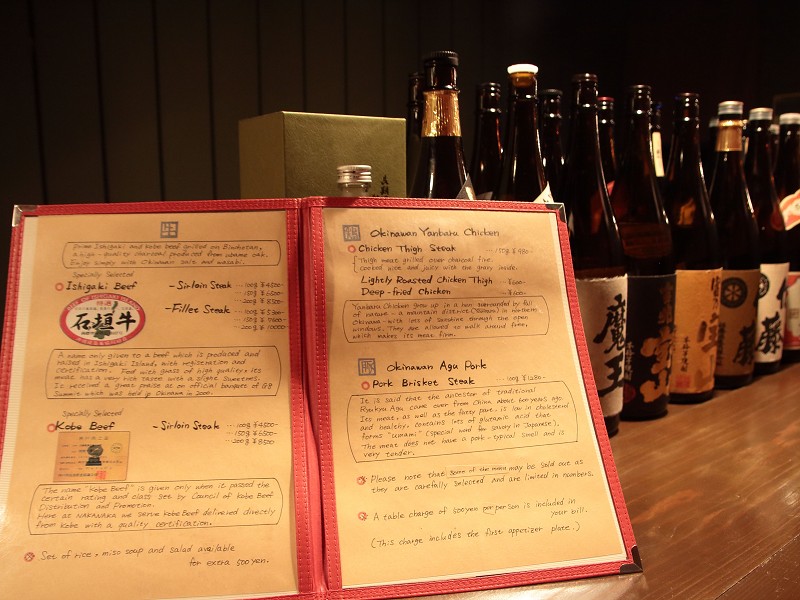 牛
Prime Ishigaki and Kobe beef grilled on Binchotan,
a high-quality charcoal produced from ubame oak.
Enjoy simply with Okinawan salt and wasabi.
Specially Selected
Ishigaki Beef -Sirloin Steak 100g ¥4500
150g ¥6600
200g ¥8500
-Fillet Steak 100g ¥5300
200g ¥10000
石垣牛
A name only given to a beef which is produced and
raised in Ishigaki Island, with registration and
certification. Feed with grass of high quality, its
meat has a very rich taste with a slight sweetness.
It received a great praise as an official banquet of G8
Summit which was held in Okinawa in 2000.
Specially Selected
Kobe Beef -Sirloin Steak 100g ¥4500
150g ¥6500
200g ¥8500
The name "Kobe Beef" is given only when it passed the
certain rating and class set by Council of Kobe Beef
Distribution and Promotion.
Here at NAKANAKA we serve Kobe Beef delivered directly
from Kobe with a quality certification.
Set of rice, miso soup and salad available
for extra 500yen.
鶏
Okinawan Yanbaru Chicken
Chicken Thigh Steak 150g ¥980
Thigh meat grilled over charcoal fire,
cooked nice and juicy with the gravy inside.
Lightly Roasted Chicken Thigh
Deep-fried Chicken ¥600
Yanbaru Chicken grew up in a barn surrounded by full
of nature - a mountain district (Yanbaru) in northern
Okinawa - with lots of sunshine through the open
windows. They are allowed to walk around free,
which makes its meat firm.
豚
Okinawan Agu Pork
Pork Brisket Steak 100g ¥1280
It is said that the ancestor of traditional
Ryukyu Agu came over from China about 600 years ago.
Its meat, as well as the fatty part, is low in cholesterol
and healthy, contains lots of glutamic acid that
forms "umami" (special word for savory in Japanese).
The meat does not have a pork-typical smell and is
very tender.
Please note that some of the menu may be sold out as
they are carefully selected and are limited in numbers.
A table charge of 500yen per person is included in
your bill.
(This charge includes the first appetizer plate.)
魔王